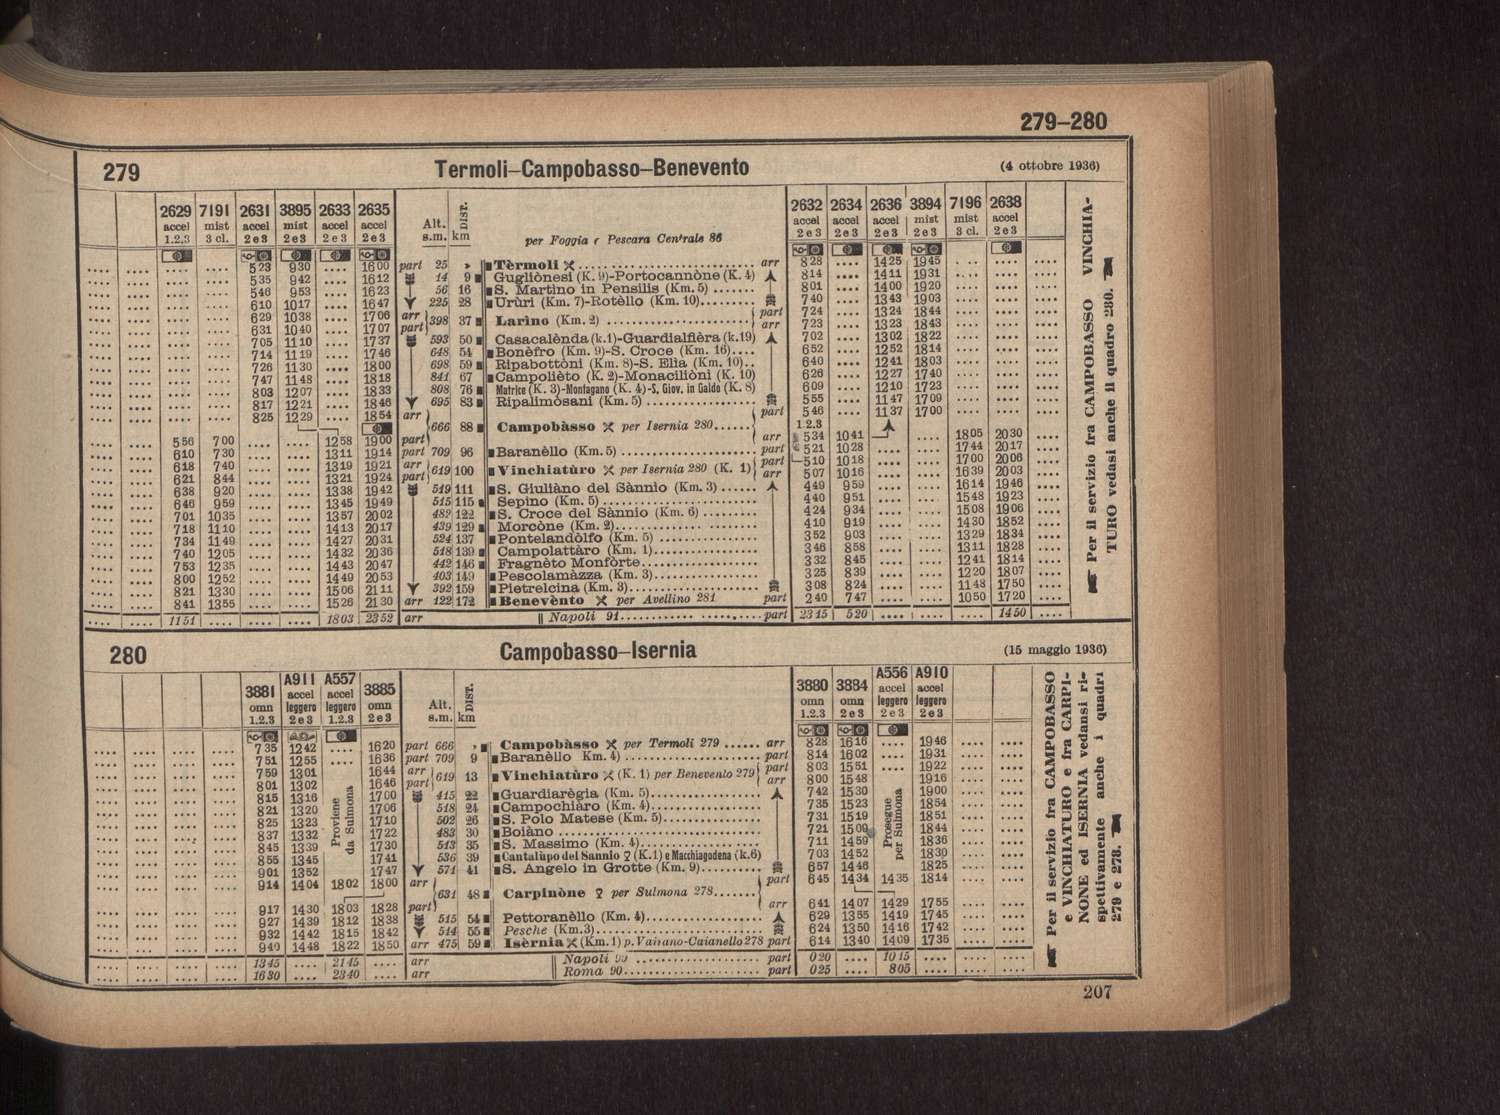 279–280
279 Termoli–Campobasso–Benevento (4 ottobre 1936)
2629 7191 2631 3895 2633 2635 Alt. DIST. 2632 2634 2636 3894 7196 2638
accel mist accel mist accel accel s.m. km accel accel accel mist mist accel
1.2.3 3 cl. 2 e 3 2 e 3 2 e 3 2 e 3 per Foggia e Pescara Centrale 86 2 e 3 2 e 3 2 e 3 2 e 3 3 cl. 2 e 3
.... .... .... .... 5 23 9 30 .... 16 00 part 25 » Tèrmoli arr 8 28 .... 14 25 19 45 .... .... ....
.... .... .... .... 5 35 9 42 .... 16 12 14 9 Gugliònesi (K. 9)-Portocannòne (K. 4) 8 14 .... 14 11 19 31 .... .... ....
.... .... .... .... 5 46 9 53 .... 16 23 56 16 S. Martino in Pensilis (Km. 5) ....... 8 01 .... 14 00 19 20 .... .... ....
.... .... .... .... 6 10 10 17 .... 16 47 225 28 Urùri (Km. 7)-Rotèllo (Km. 10)......... 7 40 .... 13 43 19 03 .... .... ....
.... .... .... .... 6 29 10 38 .... 17 06 arr 398 37 Larino (Km. 2) part 7 24 .... 13 24 18 44 .... .... ....
.... .... .... .... 6 31 10 40 .... 17 07 part arr 7 23 .... 13 23 18 43 .... .... ....
.... .... .... .... 7 05 11 10 .... 17 37 593 50 Casacalènda (k.1)-Guardialfièra (k.19) 7 02 .... 13 02 18 22 .... .... ....
.... .... .... .... 7 14 11 19 .... 17 46 648 54 Bonèfro (Km. 9)-S. Croce (Km. 16).... 6 52 .... 12 52 18 14 .... .... ....
.... .... .... .... 7 26 11 30 .... 18 00 698 59 Ripabottòni (Km. 8)-S. Elia (Km. 10).. 6 40 .... 12 41 18 03 .... .... ....
.... .... .... .... 7 47 11 48 .... 18 18 841 67 Campolièto (K. 2)-Monaciliòni (K. 10) 6 26 .... 12 27 17 40 .... .... ....
.... .... .... .... 8 03 12 07 .... 18 33 808 76 Matrice (K. 3)-Montagano (K. 4)-S. Giov. in Galdo (K. 8) 6 09 .... 12 10 17 23 .... .... ....
.... .... .... .... 8 17 12 21 .... 18 46 695 83 Ripalimòsani (Km. 5) ................ 5 55 .... 11 47 17 09 .... .... ....
.... .... .... .... 8 25 12 29 .... 18 54 arr part 5 46 .... 11 37 17 00 .... .... ....
666 88 Campobàsso per Isernia 280...... 1 2.3
5 56 7 00 .... .... 12 58 19 00 part arr 5 34 10 41 .... 18 05 20 30 ....
6 10 7 30 .... .... 13 11 19 14 part 709 96 Baranèllo (Km. 5) part 5 21 10 28 .... .... 17 44 20 17 ....
6 18 7 40 .... .... 13 19 19 21 arr 619 100 Vinchiatùro per Isernia 280 (K. 1) part 5 10 10 18 .... .... 17 00 20 06 ....
6 21 8 44 .... .... 13 21 19 24 part arr 5 07 10 16 .... .... 16 39 20 03 ....
6 38 9 20 .... .... 13 38 19 42 549 111 S. Giuliàno del Sànnio (Km. 3) ...... 4 49 9 59 .... .... 16 14 19 46 ....
6 46 9 59 .... .... 13 45 19 49 515 115 Sepino (Km. 5) 4 40 9 51 .... .... 15 48 19 23 ....
7 01 10 35 .... .... 13 57 20 02 482 122 S. Croce del Sànnio (Km. 6) ......... 4 24 9 34 .... .... 15 08 19 06 ....
7 18 11 10 .... .... 14 13 20 17 439 129 Morcòne (Km. 2) 4 10 9 19 .... .... 14 30 18 52 ....
7 34 11 49 .... .... 14 27 20 31 524 137 Pontelandòlfo (Km. 5) 3 52 9 03 .... .... 13 29 18 34 ....
7 40 12 05 .... .... 14 32 20 36 518 139 Campolattàro (Km. 1) 3 46 8 58 .... .... 13 11 18 28 ....
7 53 12 35 .... .... 14 43 20 47 442 146 Fragnèto Monfòrte 3 32 8 45 .... .... 12 41 18 14 ....
8 00 12 52 .... .... 14 49 20 53 403 149 Pescolamàzza (Km. 3) 3 25 8 39 .... .... 12 20 18 07 ....
8 21 13 30 .... .... 15 06 21 11 392 159 Pietrelcina (Km. 3) 3 08 8 24 .... .... 11 48 17 50 ....
8 41 13 55 .... .... 15 26 21 30 arr 122 172 Benevènto per Avellino 281 part 2 40 7 47 .... .... 10 50 17 20 ....
11 51 .... .... .... 18 03 23 52 arr Napoli 91 part 23 15 5 20 .... .... .... 14 50 ....
Per il servizio fra CAMPOBASSO VINCHIA-
TURO vedasi anche il quadro 280.
280 Campobasso–Isernia (15 maggio 1936)
3881 A911 A557 3885 Alt. DIST. 3880 3884 A556 A910
omn accel accel omn s.m. km omn omn accel accel
1.2.3 leggero leggero 2 e 3 1.2.3 2 e 3 leggero leggero
2 e 3 1.2.3 2 e 3 2 e 3
7 35 12 42 .... 16 20 part 666 » Campobàsso per Termoli 279 ...... arr 8 28 16 16 .... 19 46
7 51 12 55 .... 16 36 part 709 9 Baranèllo Km. 4) part 8 14 16 02 .... 19 31
7 59 13 01 16 44 arr 619 13 Vinchiatùro (K. 1) per Benevento 279 part 8 03 15 51 .... 19 22
8 01 13 02 16 46 part arr 8 00 15 48 19 16
8 15 13 16 17 00 415 22 Guardiarègia (Km. 5) 7 42 15 30 19 00
8 21 13 20 17 06 518 24 Campochiàro (Km. 4) 7 35 15 23 18 54
8 25 13 23 17 10 502 26 S. Polo Matese (Km. 5) 7 31 15 19 18 51
8 37 13 32 17 22 483 30 Boiàno 7 21 15 09 18 44
8 45 13 39 17 30 513 35 S. Massimo (Km. 4) 7 11 14 59 18 36
8 55 13 45 17 41 536 39 Cantalùpo del Sannio (K.1) e Macchiagodena (k.6) 7 03 14 52 18 30
9 01 13 52 17 47 571 41 S. Angelo in Grotte (Km. 9) 6 57 14 46 18 25
9 14 14 04 18 02 18 00 arr part 6 45 14 34 14 35 18 14
631 48 Carpinòne per Sulmona 278
9 17 14 30 18 03 18 28 part arr 6 41 14 07 14 29 17 55
9 27 14 39 18 12 18 38 515 54 Pettoranèllo (Km. 4) 6 29 13 55 14 19 17 45
9 32 14 42 18 15 18 42 514 55 Pesche (Km.3) 6 24 13 50 14 16 17 42
9 40 14 48 18 22 18 50 arr 475 59 Isèrnia (Km. 1) p. Vairano-Caianello 278 part 6 14 13 40 14 09 17 35
13 45 .... 21 45 .... arr Napoli 90 part 0 20 .... 10 15 ....
16 30 .... 23 40 .... arr Roma 90 part 0 25 .... 8 05 ....
Proviene
da Sulmona
Prosegue
per Sulmona
Per il servizio fra CAMPOBASSO
e VINCHIATURO e fra CARPI-
NONE ed ISERNIA vedansi ri-
spettivamente anche i quadri
279 e 278.
207